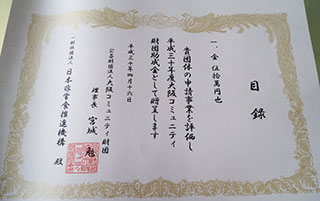 目録
一、金 伍拾萬円也
貴団体の申請事業を評価し
平成三十年度大阪コミュニティ
財団助成金として贈呈します
平成三十年四月十六日
公益財団法人大阪コミュニティ財団
理事長 宮城 勉
一般社団法人 日本非常食推進機構 殿